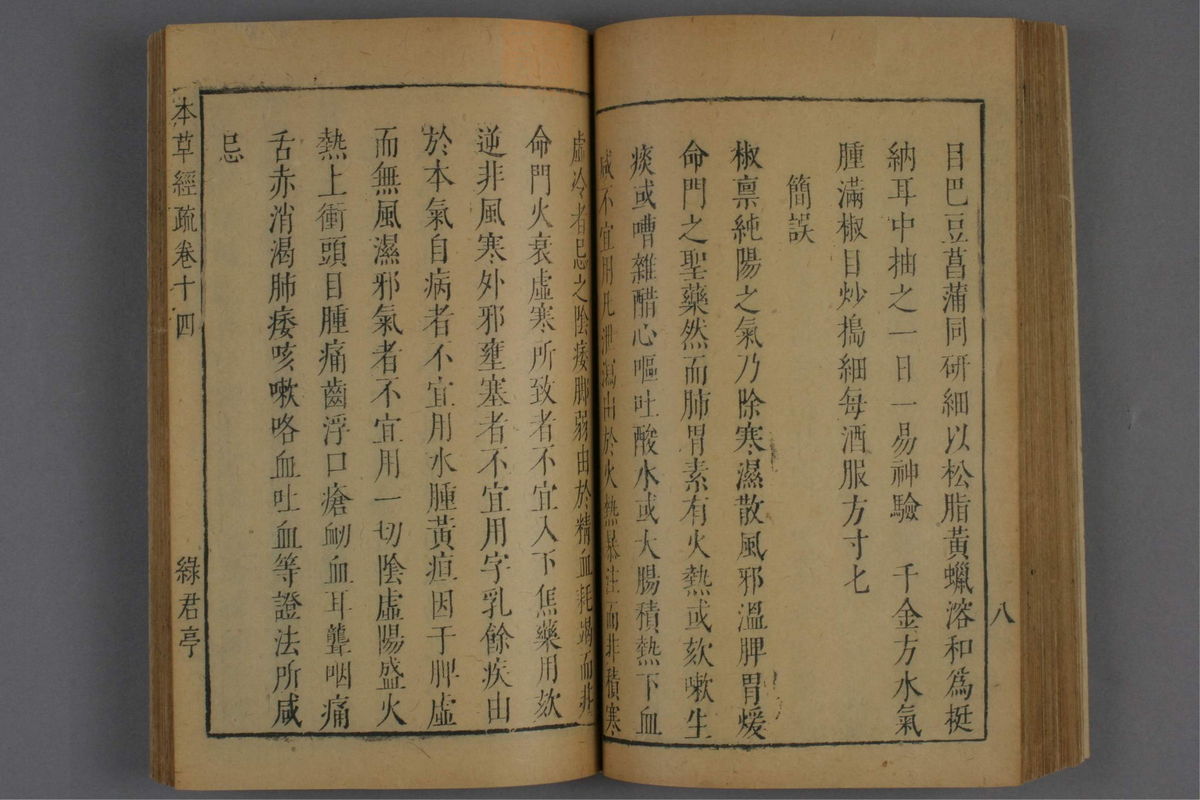 八
目巴豆菖蒲同研細以松脂黃蠟溶和爲挺
納耳中抽之一日一易神驗　千金方水氣
腫滿椒目炒搗細每酒服方寸匕
簡誤
椒禀純陽之氣乃除寒濕散風邪溫脾胃煖
命門之聖藥然而肺胃素有火熱或欬嗽生
痰或嘈雜醋心嘔吐酸水或大腸積熱下血
咸不宜用凡泄瀉由於火熱暴注而非積寒
虛冷者忌之陰痿脚弱由於精血耗竭而非
命門火衰虛寒所致者不宜入下焦藥用欬
逆非風寒外邪壅塞者不宜用字乳餘疾由
於本氣自病者不宜用水腫黃疸因于脾虛
而無風濕邪氣者不宜用一切陰虛陽盛火
熱上衝頭目腫痛齒浮口瘡衂血耳聾咽痛
舌赤消渴肺痿咳嗽咯血吐血等證法所咸
忌
本草經疏卷十四
綠君亭